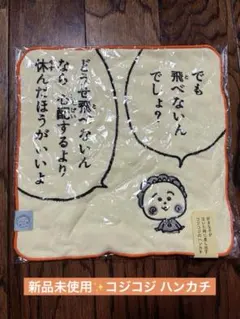 でも
飛べないん
でしょ?
どうせ飛べないん
なら、心配するより
休んだほうがいいよ
新品未使用✨コジコジ ハンカチ